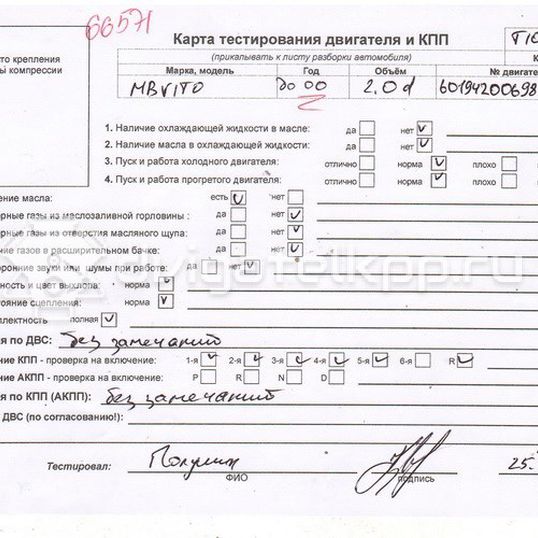 66571
Карта тестирования двигателя и КПП
(прикалывать к листу разборки автомобиля)
то крепления
ы компрессии
Марка, модель Год Объём № двигате
MB VITO до 00 2.0d 6019420069
1. Наличие охлаждающей жидкости в масле: да нет
2. Наличие масла в охлаждающей жидкости: да нет
3. Пуск и работа холодного двигателя: отлично норма плохо
4. Пуск и работа прогретого двигателя: отлично норма плохо
ение масла: есть нет
рные газы из маслозаливной горловины : да нет
рные газы из отверстия масляного щупа: да нет
ние газов в расширительном бачке: да нет
оронние звуки или шумы при работе: да нет
ность и цвет выхлопа: норма
тояние сцепления: норма
плектность полная
я по ДВС: без замечаний
ние КПП - проверка на включение: 1-я 2-я 3-я 4-я 5-я 6-я R
ние АКПП - проверка на включение: P R N D
я по КПП (АКПП): без замечаний
ДВС (по согласованию!):
Тестировал: 25.
ФИО подпись
dvigatelkpp.ru